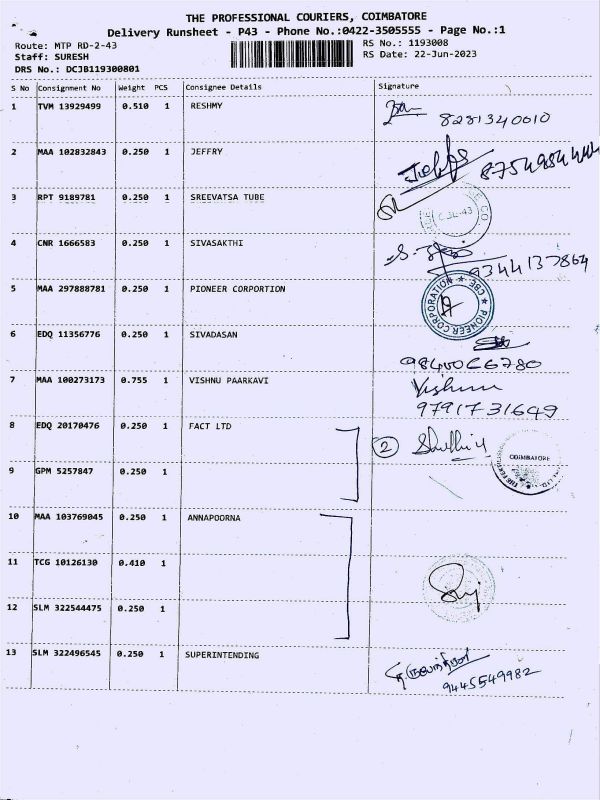 THE PROFESSIONAL COURIERS, COIMBATORE
Delivery Runsheet - P43 - Phone No.:0422-3505555 - Page No.:1
Route: MTP RD-2-43 RS No.: 1193008
Staff: SURESH RS Date: 22-Jun-2023
DRS No.: DCJB119300801
S No Consignment No Weight PCS Consignee Details Signature
1 TVM 13929499 0.510 1 RESHMY
8281340010
2 MAA 102832843 0.250 1 JEFFRY
3 RPT 9189781 0.250 1 SREEVATSA TUBE
4 CNR 1666583 0.250 1 SIVASAKTHI
9344137864
5 MAA 297888781 0.250 1 PIONEER CORPORTION
PIONEER CORPORATION CBE
6 EDQ 11356776 0.250 1 SIVADASAN
7 MAA 100273173 0.755 1 VISHNU PAARKAVI
Vishnu
9791731649
8 EDQ 20170476 0.250 1 FACT LTD
2
COIMBATORE
9 GPM 5257847 0.250 1
10 MAA 103769045 0.250 1 ANNAPOORNA
11 TCG 10126130 0.410 1
12 SLM 322544475 0.250 1
13 SLM 322496545 0.250 1 SUPERINTENDING
9445549982